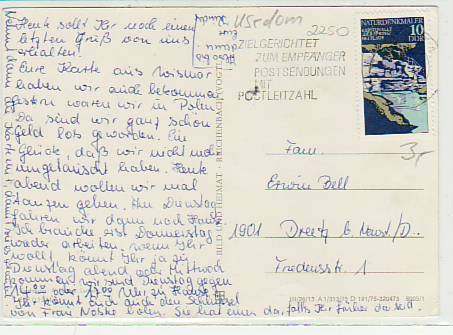 Usedom
2250
ZIELGERICHTET
ZUM EMPFÄNGER
POSTSENDUNGEN
MIT
POSTLEITZAHL
NATURDENKMÄLER
10
DDR
Heute sollt Ihr noch einen
letzten Gruß von uns
erhalten.
Eure Karte aus Wismar
haben wir auch bekommen
gestern waren wir in Polen.
Da sind wir ganz schön
Geld los geworden. Ein
Glück, daß wir nicht mehr
umgetauscht haben. Heute
abend wollen wir mal
tanzen gehen. Am Dienstag
fahren wir dann nach Hause.
Ich brauche erst Donnerstag
wieder arbeiten. Wenn Ihr
wollt, könnt Ihr ja zu
Dienstag abend oder Mittwoch
kommen, wir sind Dienstag gegen
14.00 oder 15.00 Uhr zu Hause.
Ihr könnt Euch auch den Schlüssel
von Frau Noske holen. Sie hat einen da, falls Ihr früher da seid.
BILD UND HEIMAT REICHENBACH (VOGTL)
Fam.
Erwin Bell
1901 Dreetz b. Neust./D.
Friedensstr. 1
3,-